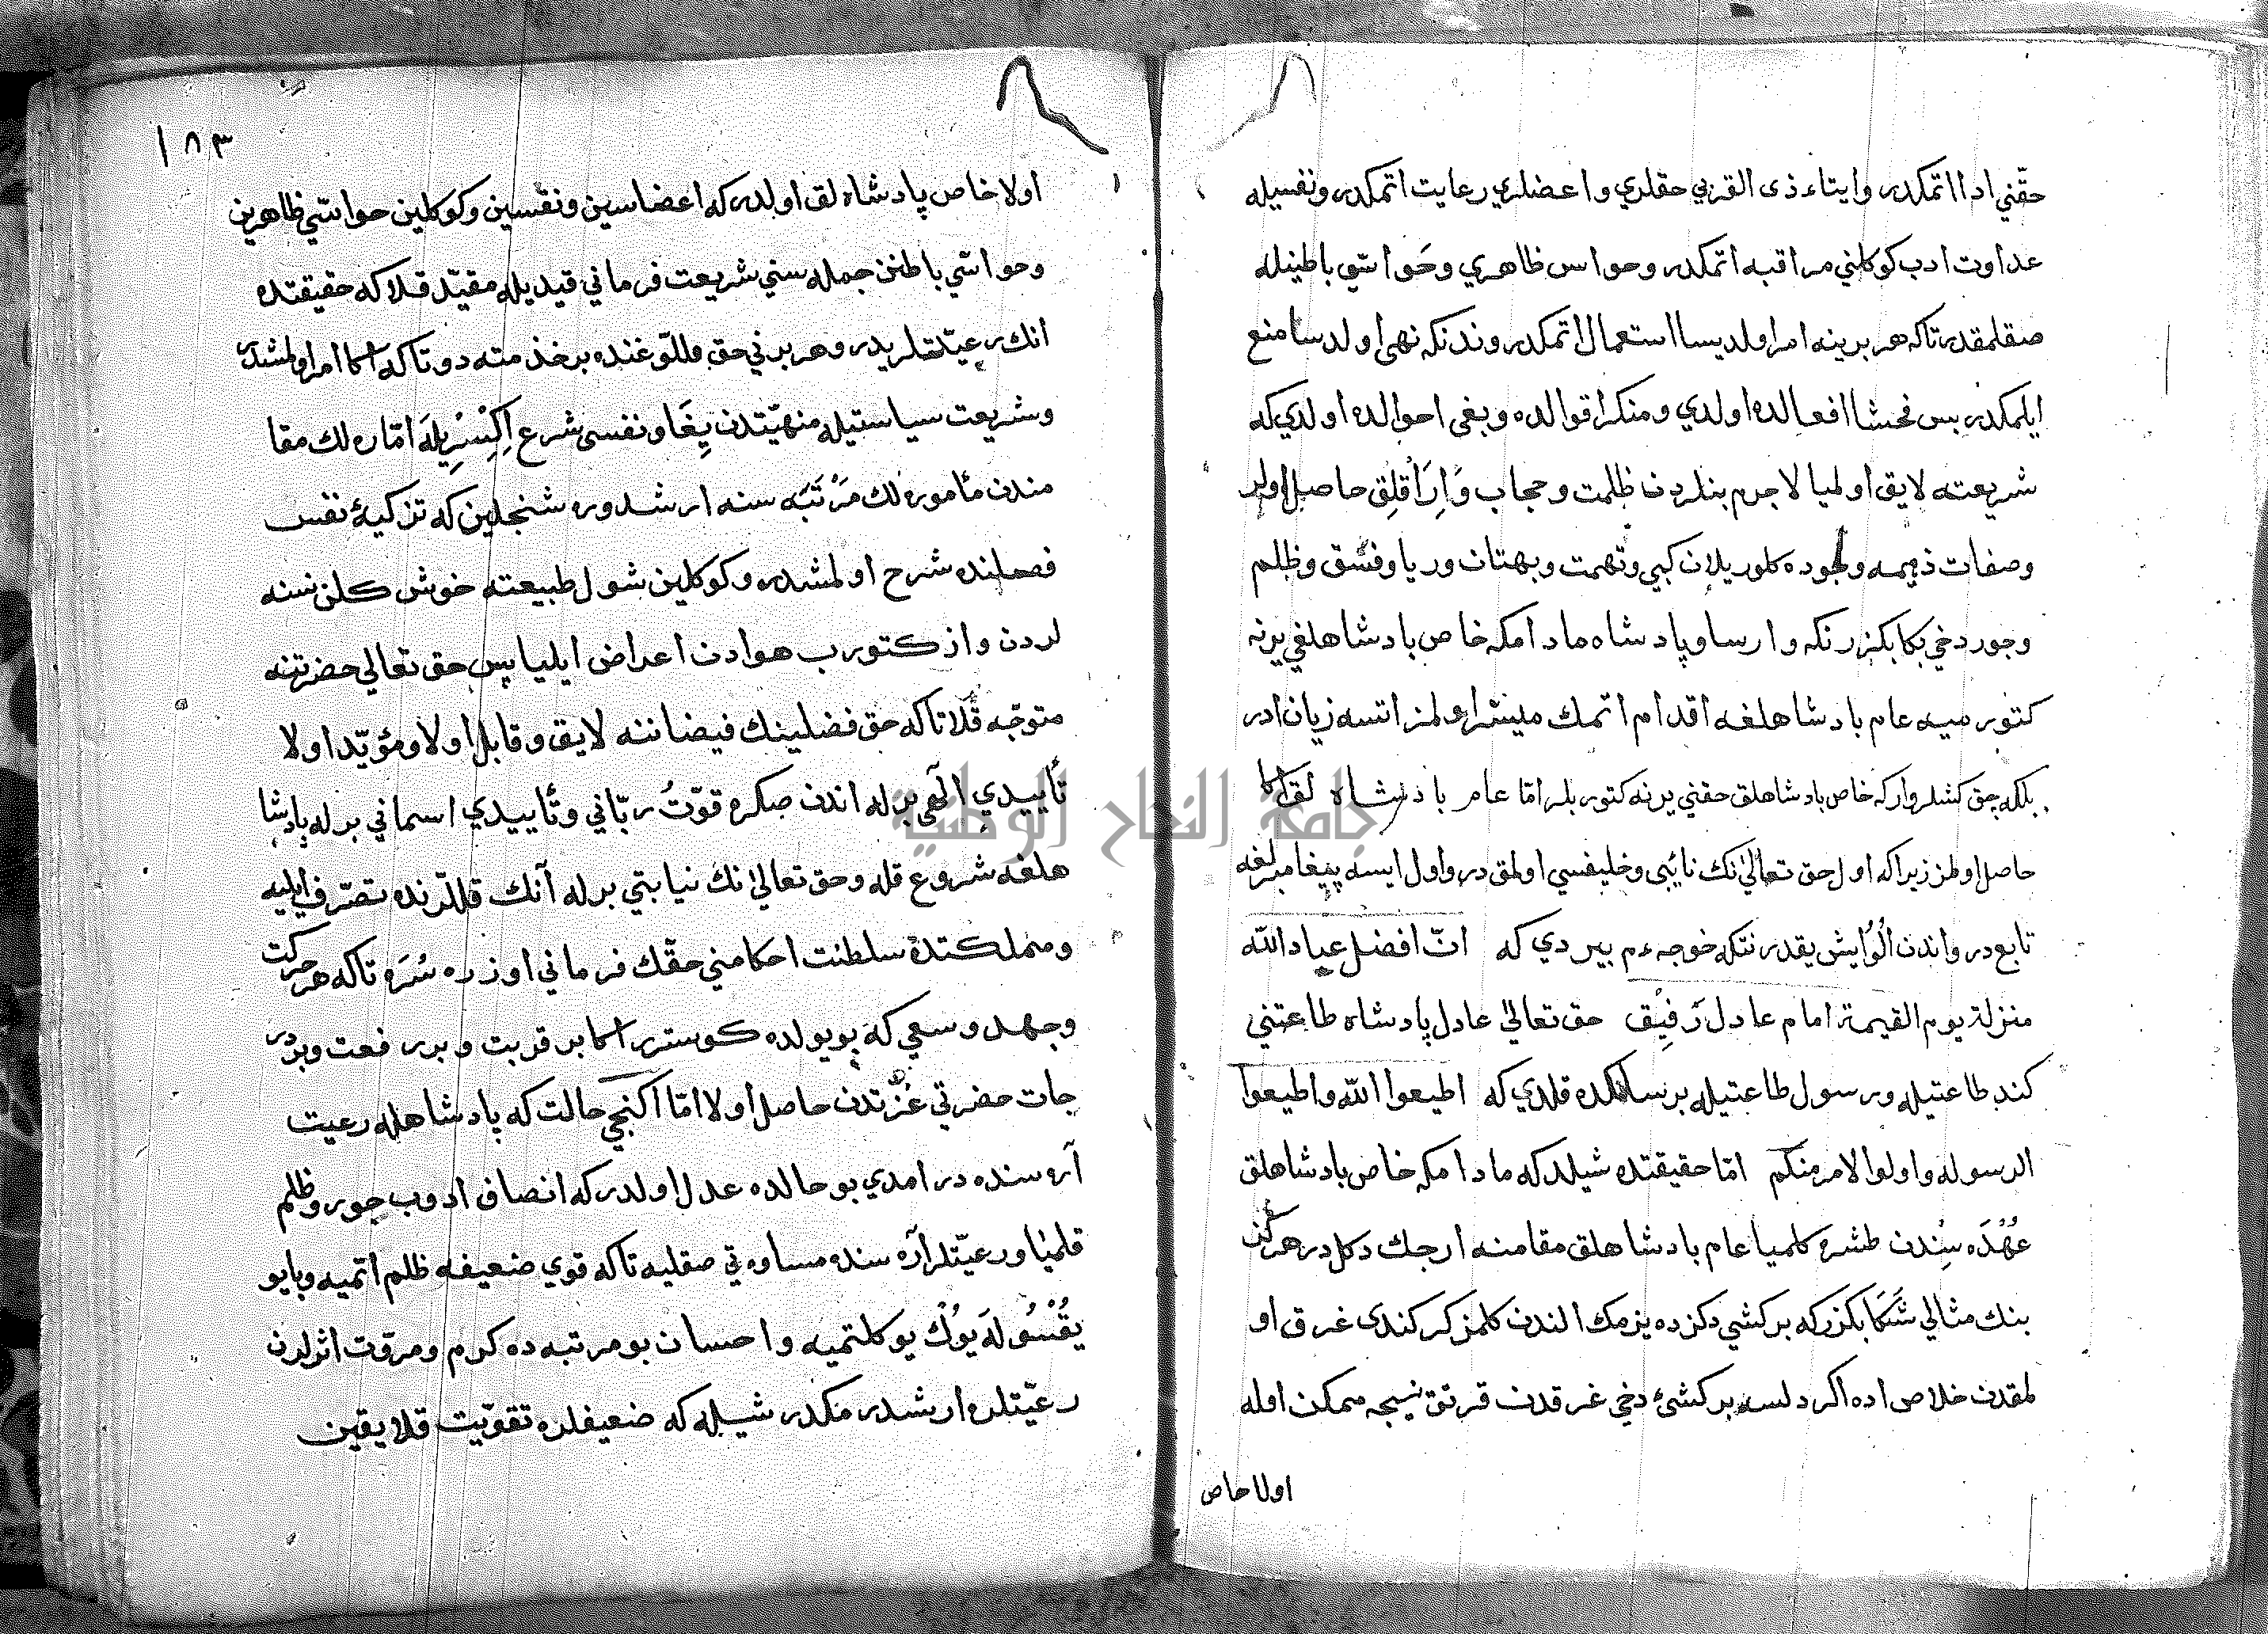 حقّني ادا اتمكدر وايتاء ذى القربي حقلري واعضلري رعايت اتمكدر ونفسيله
عداوت ادب كوكلني مراقبه اتمكدر وحواس ظاهري وحواسّي باطنيله
صقلمقدر تاكه هر برينه امر اولديسا استعمال اتمكدر وندنكه نهى اولدسا منع
ايلمكدر بس فحشا افعالده اولدي ومنكر اقوالده وبغى احوالده اولدي كه
شريعته لايق اولميا لاجرم بنلردن ظلمت وحجاب وَارَاْقلِق حاصل اولر
وصفات ذميمه وجوده كلور يلان كبي وتهمت وبهتان وريا وفسق وظلم
وجور دخي بكا بكزر نكه وارسا وپادشاه مادامكه خاص بادشاهلغي يرنه
كتورميه عام بادشاهلغه اقدام اتمك ميسّر اولمز اتسه زيان ادر
بلكه چق كشلر وار كه خاص بادشاهلق حقني يرنه كتوربلر امّا عام بادشاه لق اكا
حاصل اولمز زيراكه اول حق تعالىٰ نك نائبى وخليفسي اولمق در واول ايسه پيغامبرلغه
تابع در واندن الُو ايش يقدر نتكه خوجه ءم بيردي كه انّ افضل عباد الله
منزلة يوم القيمة امام عادل رَفِيق حق تعالىٰ عادل پادشاه طاعتني
كندطاعتيله ورسول طاعتيله برسلكده قلدي كه اطيعوا الله واطيعوا
الرسوله واولوا لامر منكم امّا حقيقتده شيلدكه مادامكه خاص بادشاهلق
عُهْدَه سِندن طشره كلميا عام بادشاهلق مقامنه ارجك دكلدر هركز
بنك مثالي شَنكا بكزركه بركشي دكزده يزمك الندن كلمز كركندى غرق او
لمقدن خلاص اده اكر دلسه بركشئ دخي غرقدن قرتق نيجه ممكن اوله
اولا خاص
١٨٣
اولا خاص پادشاه لق اولدر كه اعضاسين ونفسين وكوكلين حواسّي ظاهرين
وحواسّي باطنن جمله سني شريعت فرماني قيديله مقيّد قلا كه حقيقتده
انك رعيّتلريدر وهر برني حق قللّوغنده برخذمته دوتا كه اكا امر اولمشدر
وشريعت سياستيله منهيّتدن يِغَا ونفسى شرع اِكْسِرِيلَه امّاره لك مقا
مندن مأموره لك مَرْتَبَه سنه ارشدوره شنجلين كه تزكيۀ نفس
فصلنده شرح اولمشدر وكوكلين شول طبيعته خوش كلن نسنه
لردن واز كتورب هوادن اعراض ايليا پس حق تعالي حضرتنه
متوجّه قُلا تاكه حق فضلينك فيضاننه لايق وقابل اولا ومؤيّد اولا
تأييدي الٓهي برله اندن صكره قوّتُ ربّاني وتأييدي اسماني برله پادشا
هلغه شروع قله وحق تعالىٰ نك نيابتي برله آنك قللرنده تصرّف ايليه
ومملكتده سلطنت احكامني حقّك فرماني اوزره سُرَه تاكه هر حركت
وجهد وسعي كه بو يولده كوستر اكا بر قربت وبر رفعت وبر در
جات حضرتي عزّتدن حاصل اولا امّا اكنجي حالت كه پادشاهله رعيت
آره سنده در امدي بو حالده عدل اولدر كه انصاف ادوب جور وظلم
قلميا ورعيّتلر آره سنده مساوه تي صقليه تاكه قوي ضعيفه ظلم اتميه وبايو
يقْسُولَه يوْك يوكلتميه واحسان بو مرتبه ده كرم ومروّت اثرلرن
رعيّتلره ارشدرمكدر شيله كه ضعيفلره تقويت قلا يقين